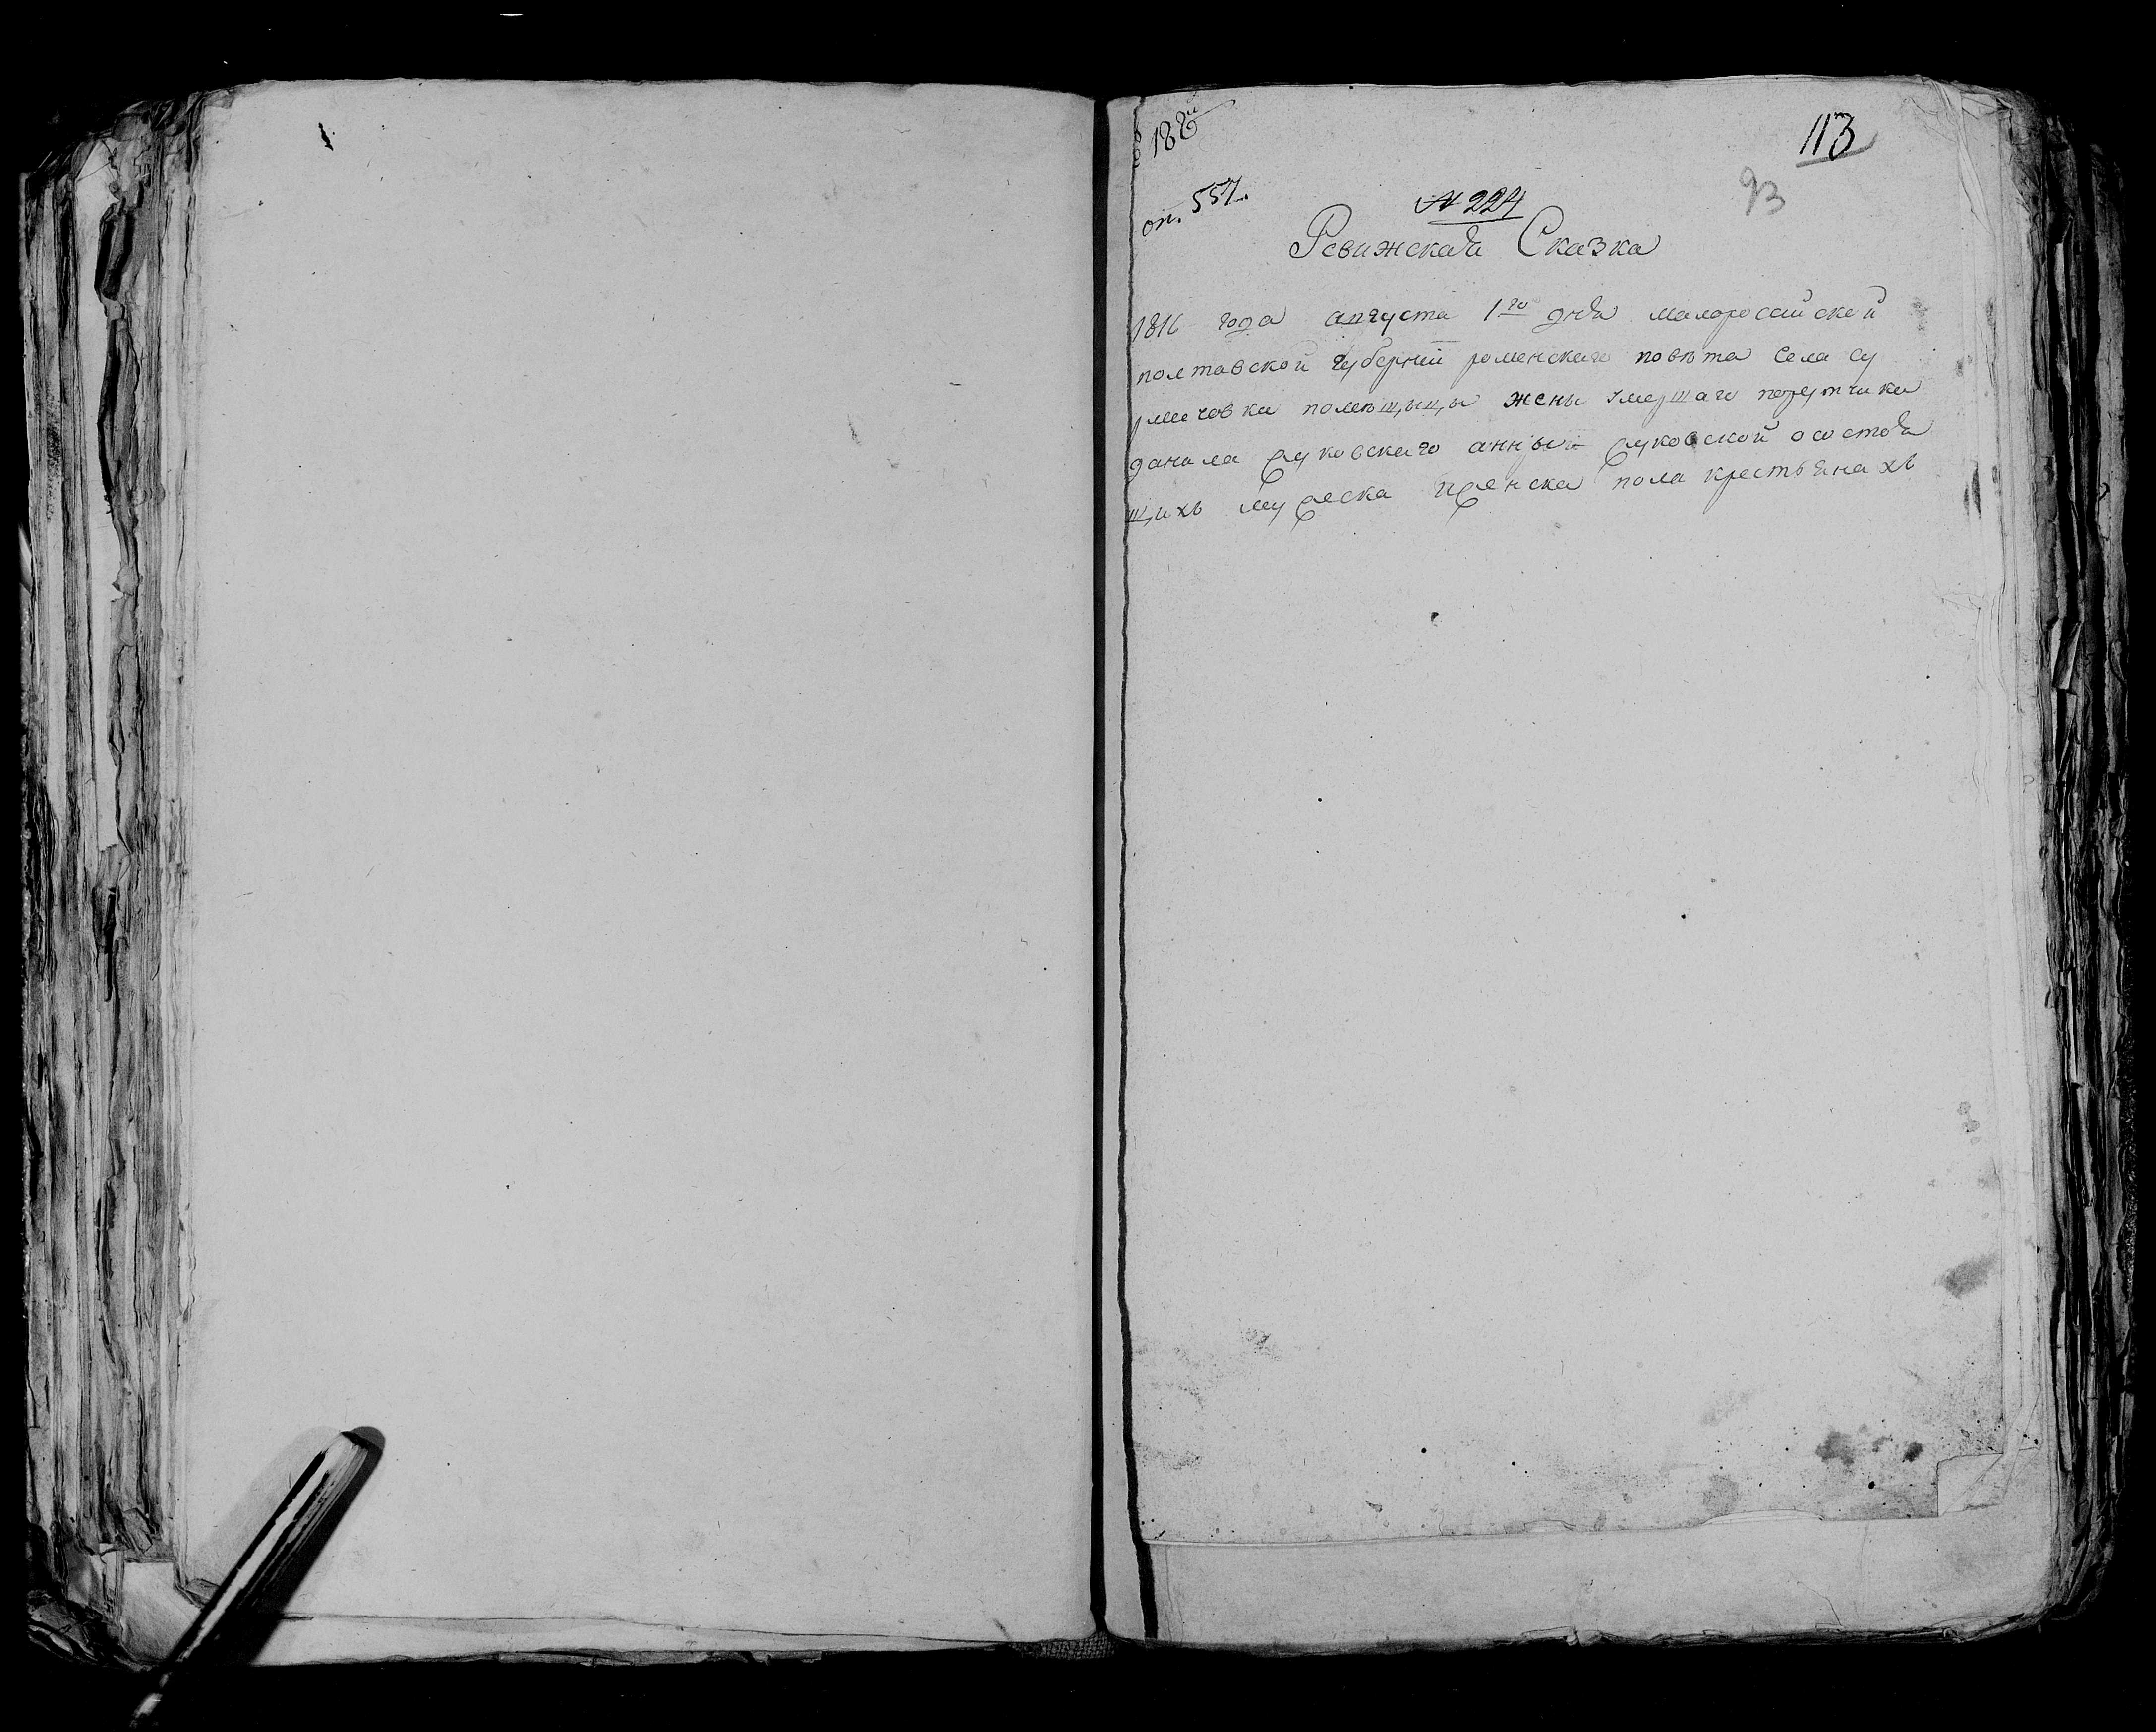 188й
113
оп. 557.
93
№ 224
Ревижская Сказка
1816 года августа 1го дня малоросийской
полтавской губернии роменскаго повѣта села су
рмачовки помѣщыцы жены умершаго порутчика
данила жуковскаго анны жуковской о состоя
щихъ мужеска и женска пола крестьянахъ